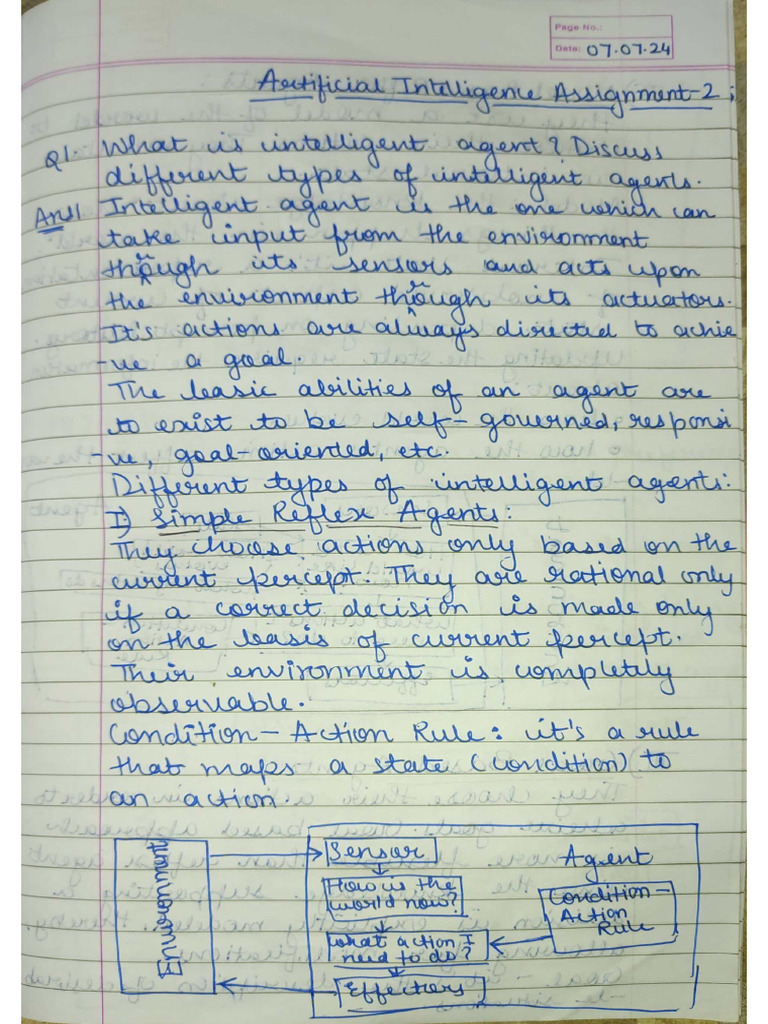 Page No.:
Date: 07.07.24
Artificial Intelligence Assignment-2;
Q1. What is intelligent agent? Discuss
different types of intelligent agents.
Ans1. Intelligent agent is the one which can
take input from the environment
through its sensors and acts upon
the environment through its actuators.
It's actions are always directed to achie
-ve a goal.
The basic abilities of an agent are
to exist to be self-governed, responsi
-ve, goal-oriented, etc.
Different types of intelligent agents:
I) Simple Reflex Agents:
They choose actions only based on the
current percept. They are rational only
if a correct decision is made only
on the basis of current percept.
Their environment is completely
observable.
Condition-Action Rule: it's a rule
that maps a state (condition) to
an action.
Environment
Sensor
Agent
How is the
world now?
Condition-
Action
Rule
What action I
need to do?
Effectors